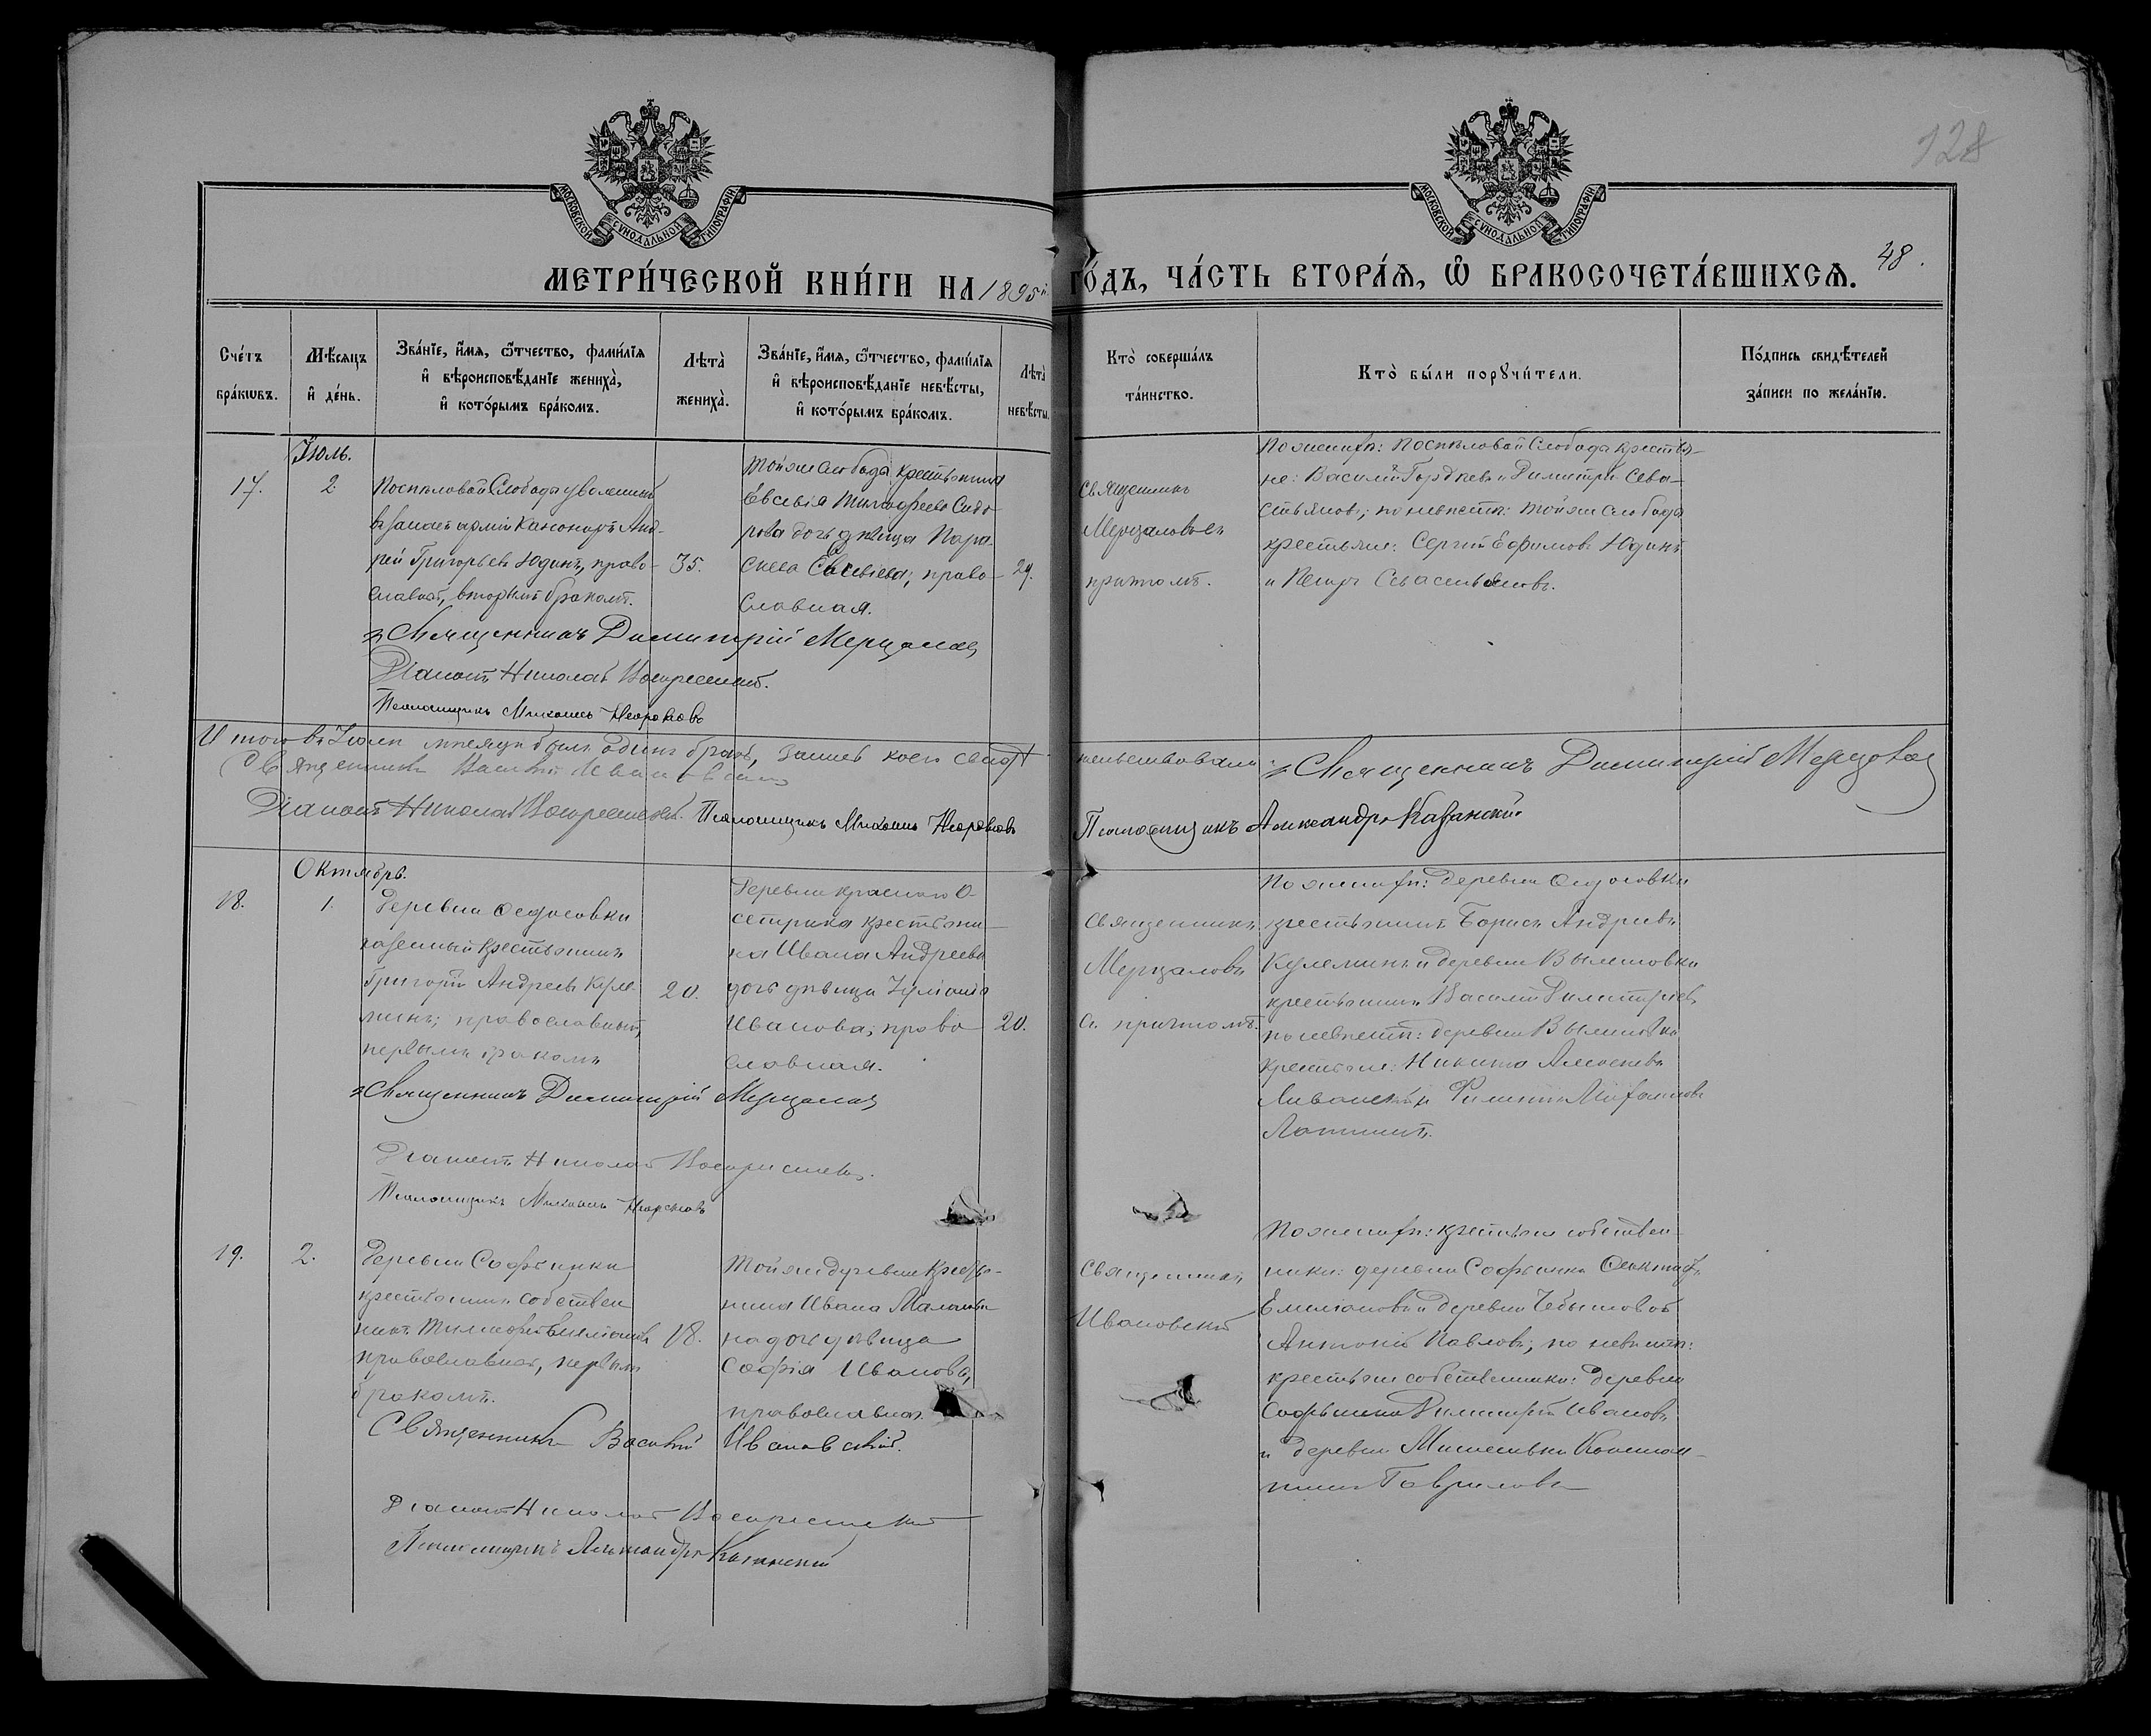 128
МОСКОВСКОЙ СѴНОДАЛЬНОЙ ТИПОГРАФІИ
МОСКОВСКОЙ СѴНОДАЛЬНОЙ ТИПОГРАФІИ
48.
МЕТРИ́ЧЕСКОЙ КНИ́ГИ НА 1895й ГО́ДЪ, ЧА́СТЬ ВТОРА́Я, Ѡ҆ БРАКОСОЧЕТА́ВШИХСѦ.
Сче́тъ
бра́кѡвъ.
Мѣ́сяцъ
и҆ де́нь.
Зва́нїе, и҆́мя, ѻ҆́тчество, фами́лїя
и҆ вѣроисповѣ́данїе жениха̀,
и҆ кото́рымъ бра́комъ.
Лѣта̀
жениха̀.
Зва́нїе, и҆́мя, ѻ҆́тчество, фами́лїя
и҆ вѣроисповѣ́данїе невѣ́сты,
и҆ кото́рымъ бра́комъ.
Лѣта̀
невѣ́сты.
Кто̀ соверша́лъ
та́инство.
Кто̀ бы́ли порꙋчи́тели.
По́дпись свидѣ́телей
за́писи по жела́нїю.
Іюль.
17.
2
Поспѣловой Слободы уволенный
въ запасъ арміи Канониръ Анд-
рей Григорьевъ Юдинъ, право-
славный, вторымъ бракомъ.
35.
Той же слободы крестьянина
Евсевія Тимофеева Сидо-
рова дочь дѣвица Пара-
скева Евсевіева, право-
славная.
Священникъ
Мерцаловъ съ
причтомъ.
По женихѣ: Поспѣловой Слободы крестья-
не: Василій Гордѣевъ и Димитрій Сева-
стьяновъ; по невѣстѣ: той же слободы
крестьяне: Сергѣй Ефимовъ Юдинъ
и Петръ Севастьяновъ.
Священникъ Димитрій Мерцаловъ
Діаконъ Николай Воскресенскій.
Псаломщикъ Михаилъ
Итого въ Іюлѣ мѣсяцѣ былъ одинъ бракъ, запись коего свидѣ-
тельствовали: Священникъ Димитрій Мерцаловъ
Священникъ Василій Ивановскій
Діаконъ Николай Воскресенскій. Псаломщикъ Михаилъ
Псаломщикъ Александръ Казанскій
Октябрь.
18.
1.
Деревни Ѳедосовки
казенный крестьянинъ
Григорій Андреевъ Куле-
минъ; православный,
первымъ бракомъ
20.
Деревни Краснаго О-
сетрика крестьяни-
на Ивана Андреева
дочь дѣвица Іуліанія
Иванова, право-
славная.
20.
Священникъ
Мерцаловъ
съ причтомъ.
По женихѣ: деревни Ѳедосовки
крестьянинъ Борисъ Андреевъ
Кулеминъ и деревни
крестьянинъ Василій Димитріевъ,
по невѣстѣ: деревни
крестьяне: Никита Алексѣевъ
и Филиппъ
Священникъ Димитрій Мерцаловъ
Діаконъ Николай Воскресенскій.
Псаломщикъ Михаилъ
19.
2.
Деревни Софьинки
крестьянинъ собствен-
никъ Тимофей Емиліановъ
православный, первымъ
бракомъ.
18.
Той же деревни крестья-
нина Ивана
на дочь дѣвица
Софія Иванова,
православная.
Священникъ
Ивановскій
По женихѣ: крестьяне собствен-
ники: деревни Софьинки
Емиліановъ и деревни
Антоній Павловъ; по невѣстѣ:
крестьяне собственники: деревни
Софьинки Димитрій Ивановъ
и деревни Констан-
тинъ Гавриловъ
Священникъ Василій Ивановскій.
Діаконъ Николай Воскресенскій
Псаломщикъ Александръ Казанскій